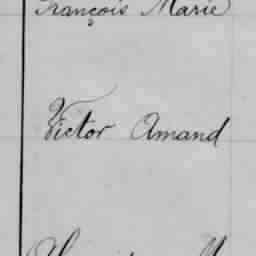 François Marie
Victor Amand